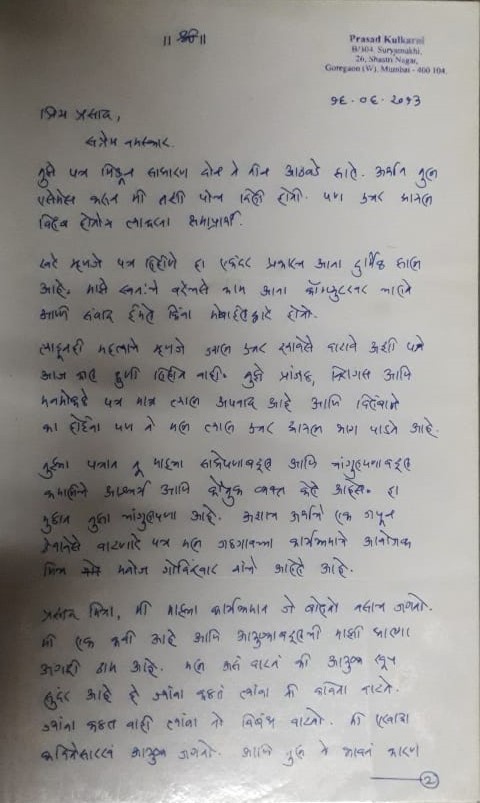 || श्री ||
Prasad Kulkarni
B/104, Suryamukhi,
26, Shastri Nagar,
Goregaon (W), Mumbai - 400 104.
१६.०६.२०१३
प्रिय प्रसाद,
सप्रेम नमस्कार.
तुझे पत्र मिळून साधारण दोन ते तीन आठवडे झाले. अर्थात तुला
एसेमेस करून मी तशी पोच दिली होती. पण उत्तर द्यायला
विलंब होतोय त्याबद्दल क्षमाप्रार्थी.
खरं म्हणजे पत्र लिहिणे हा एकंदर प्रकारच आता दुर्मिळ झाला
आहे. माझे स्वतःचे बरेचसे काम आता कॉम्प्युटरवर चालते
आणि संवाद ईमेल किंवा मोबाईलद्वारे होतो.
त्याहूनही महत्वाचे म्हणजे ज्याला उत्तर द्यावेसे वाटावे अशी पत्रे
आज काल कुणी लिहित नाही. तुझे प्रांजळ, निरागस आणि
मनमोकळे पत्र मात्र त्याला अपवाद आहे आणि विलंबाने
का होईना पण ते मला त्याला उत्तर द्यायला भाग पाडते आहे.
तुझ्या पत्रात तू माझ्या साधेपणाबद्दल आणि चांगुलपणाबद्दल
कमालीचे आश्चर्य आणि कौतुक व्यक्त केले आहेस. हा
तुझाच तुझा चांगुलपणा आहे. अशाच अर्थाचे एक जपून
ठेवावेसे वाटणारे पत्र मला गडगावच्या कार्यक्रमाचे आयोजक
मित्र मनोज गोविंदवार यांचे आलेले आहे.
प्रसाद मित्रा, मी माझ्या कार्यक्रमात जे बोलतो तसाच जगतो.
मी एक कवी आहे आणि आयुष्याबद्दलची माझी धारणा
अगदी ठाम आहे. मला असं वाटतं की आयुष्य खूप
सुंदर आहे हे ज्यांना कळतं त्यांना ती कविता वाटते.
ज्यांना कळत नाही त्यांना तो निबंध वाटतो. मी एखाद्या
कवितेसारखं आयुष्य जगतो. आणि तुला ते भावलं कारण
२